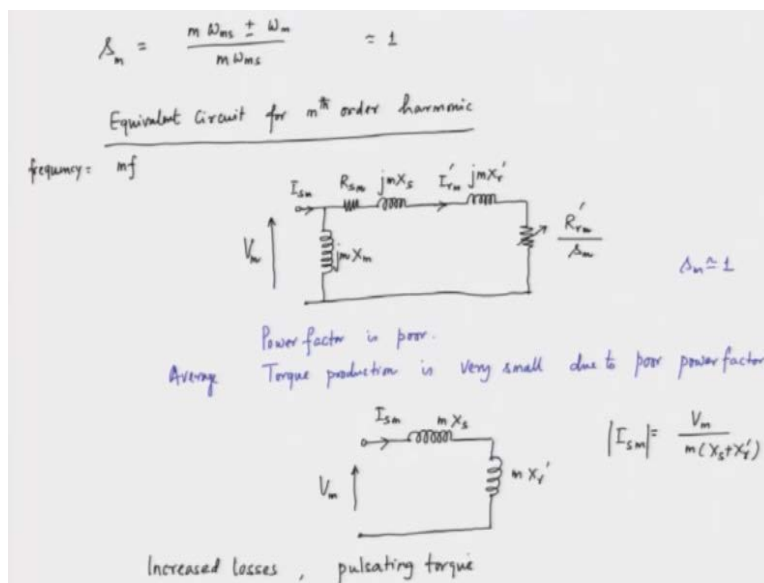 s_m = (m ω_ms ± ω_m) / (m ω_ms) ≃ 1
Equivalent Circuit for mth order harmonic
frequency = mf
I_sm R_sm jmX_s I'_rm jmX_r'
V_m jmX_m R'_rm / s_m
s_m ≃ 1
Power factor is poor.
Average Torque production is very small due to poor power factor
I_sm mX_s
|I_sm| = V_m / m(X_s+X_r')
V_m mX_r'
Increased losses, pulsating torque